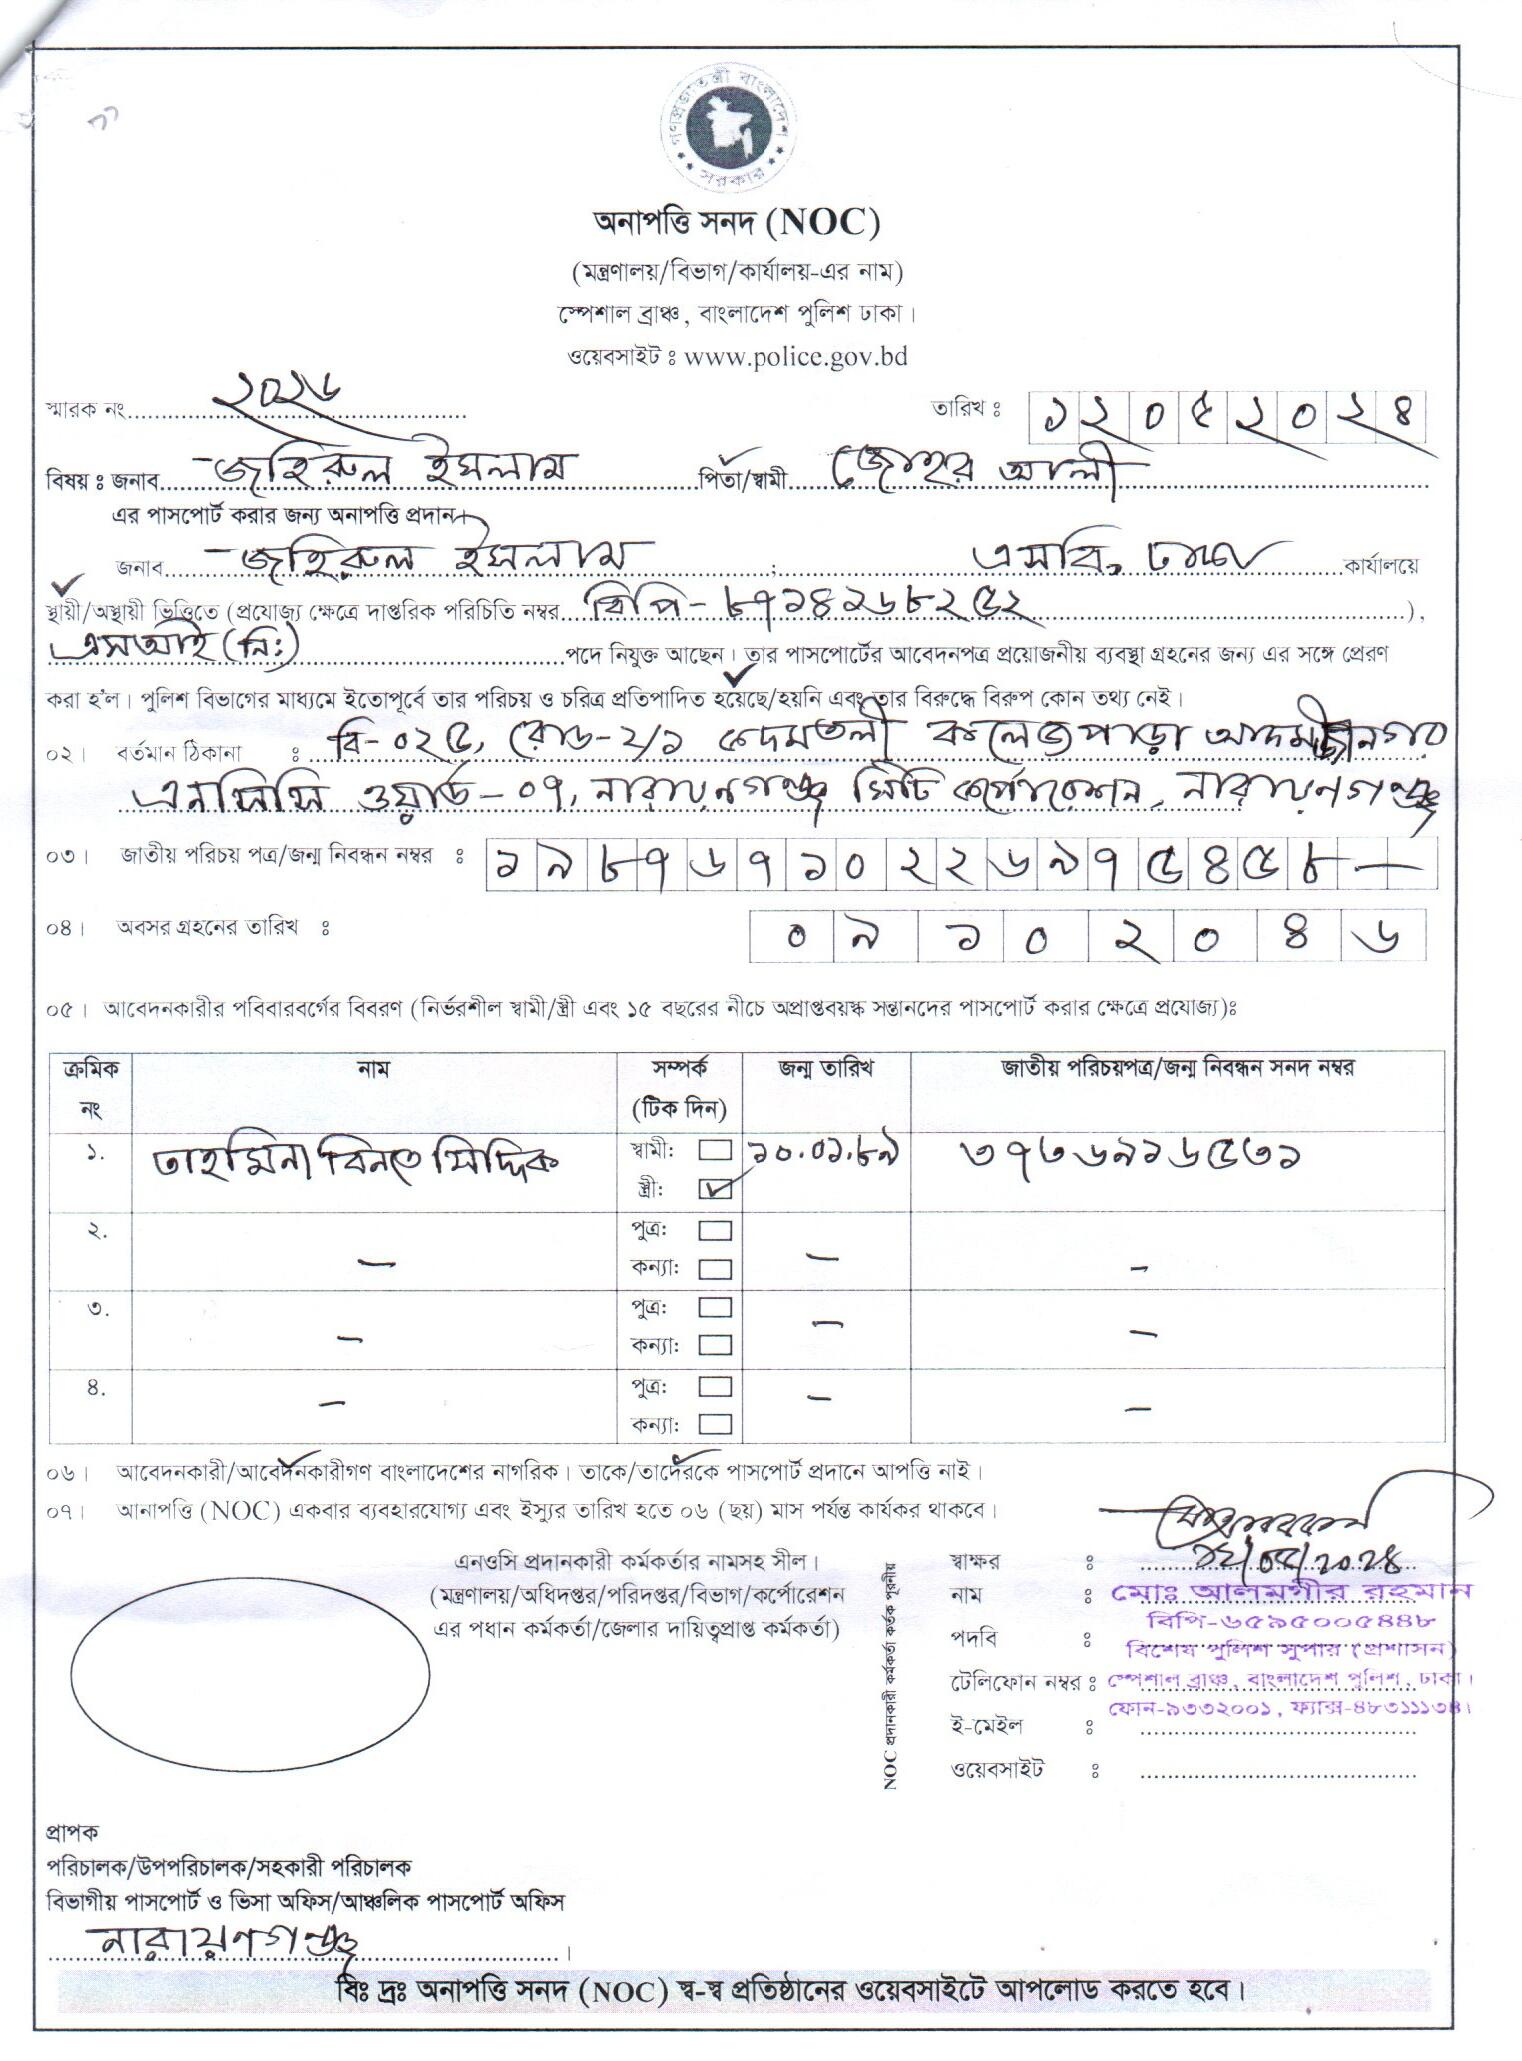 গণপ্রজাতন্ত্রী বাংলাদেশ
সরকার
অনাপত্তি সনদ (NOC)
(মন্ত্রণালয়/বিভাগ/কার্যালয়-এর নাম)
স্পেশাল ব্রাঞ্চ, বাংলাদেশ পুলিশ ঢাকা।
ওয়েবসাইট ঃ www.police.gov.bd
স্মারক নং ২০২৬ তারিখ ঃ ১২০৫২০২৪
বিষয় ঃ জনাব জহিরুল ইসলাম পিতা/স্বামী জোহর আলী
এর পাসপোর্ট করার জন্য অনাপত্তি প্রদান।
জনাব জহিরুল ইসলাম ; এসবি, ঢাকা কার্যালয়ে
স্থায়ী/অস্থায়ী ভিত্তিতে (প্রযোজ্য ক্ষেত্রে দাপ্তরিক পরিচিতি নম্বর বিপি-৮৭১৪১৬৮২৫২),
এসআই (নিঃ) পদে নিযুক্ত আছেন। তার পাসপোর্টের আবেদনপত্র প্রয়োজনীয় ব্যবস্থা গ্রহনের জন্য এর সঙ্গে প্রেরণ
করা হ'ল। পুলিশ বিভাগের মাধ্যমে ইতোপূর্বে তার পরিচয় ও চরিত্র প্রতিপাদিত হয়েছে/হয়নি এবং তার বিরুদ্ধে বিরুপ কোন তথ্য নেই।
০২। বর্তমান ঠিকানা ঃ বি-০২৫, রোড-২/১ কদমতলী কলেজপাড়া আদমজীনগর
এনসিসি ওয়ার্ড-০৭, নারায়নগঞ্জ সিটি কর্পোরেশন, নারায়ণগঞ্জ
০৩। জাতীয় পরিচয় পত্র/জন্ম নিবন্ধন নম্বর ঃ ১৯৮৭৬৭১০২২৬৯৭৫৪৫৮
০৪। অবসর গ্রহনের তারিখ ঃ ০৯১০২০৪৬
০৫। আবেদনকারীর পবিবারবর্গের বিবরণ (নির্ভরশীল স্বামী/স্ত্রী এবং ১৫ বছরের নীচে অপ্রাপ্তবয়স্ক সন্তানদের পাসপোর্ট করার ক্ষেত্রে প্রযোজ্য)ঃ
ক্রমিক নাম সম্পর্ক জন্ম তারিখ জাতীয় পরিচয়পত্র/জন্ম নিবন্ধন সনদ নম্বর
নং (টিক দিন)
১. তাহমিনা বিনতে সিদ্দিক স্বামী: ১০.০১.৮৯ ৩৭৩৬৯১৬৫৩১
স্ত্রী:
২. পুত্র:
– কন্যা: – –
৩. পুত্র:
– কন্যা: – –
৪. পুত্র:
– কন্যা: – –
০৬। আবেদনকারী/আবেদনকারীগণ বাংলাদেশের নাগরিক। তাকে/তাদেরকে পাসপোর্ট প্রদানে আপত্তি নাই।
০৭। আনাপত্তি (NOC) একবার ব্যবহারযোগ্য এবং ইস্যুর তারিখ হতে ০৬ (ছয়) মাস পর্যন্ত কার্যকর থাকবে।
এনওসি প্রদানকারী কর্মকর্তার নামসহ সীল।
(মন্ত্রণালয়/অধিদপ্তর/পরিদপ্তর/বিভাগ/কর্পোরেশন
এর পধান কর্মকর্তা/জেলার দায়িত্বপ্রাপ্ত কর্মকর্তা)
NOC প্রদানকারী কর্মকর্তা কর্তৃক পূরনীয়
স্বাক্ষর ঃ ১২/০৫/২০২৪
নাম ঃ মোঃ আলমগীর রহমান
বিপি-৬৫৯৫০০৫৪৪৮
পদবি ঃ বিশেষ পুলিশ সুপার (প্রশাসন)
টেলিফোন নম্বর ঃ স্পেশাল ব্রাঞ্চ, বাংলাদেশ পুলিশ, ঢাকা।
ফোন-৯৩৩২০০১, ফ্যাক্স-৪৮৩১১১৩৪।
ই-মেইল ঃ
ওয়েবসাইট ঃ
প্রাপক
পরিচালক/উপপরিচালক/সহকারী পরিচালক
বিভাগীয় পাসপোর্ট ও ভিসা অফিস/আঞ্চলিক পাসপোর্ট অফিস
নারায়ণগঞ্জ।
বিঃ দ্রঃ অনাপত্তি সনদ (NOC) স্ব-স্ব প্রতিষ্ঠানের ওয়েবসাইটে আপলোড করতে হবে।